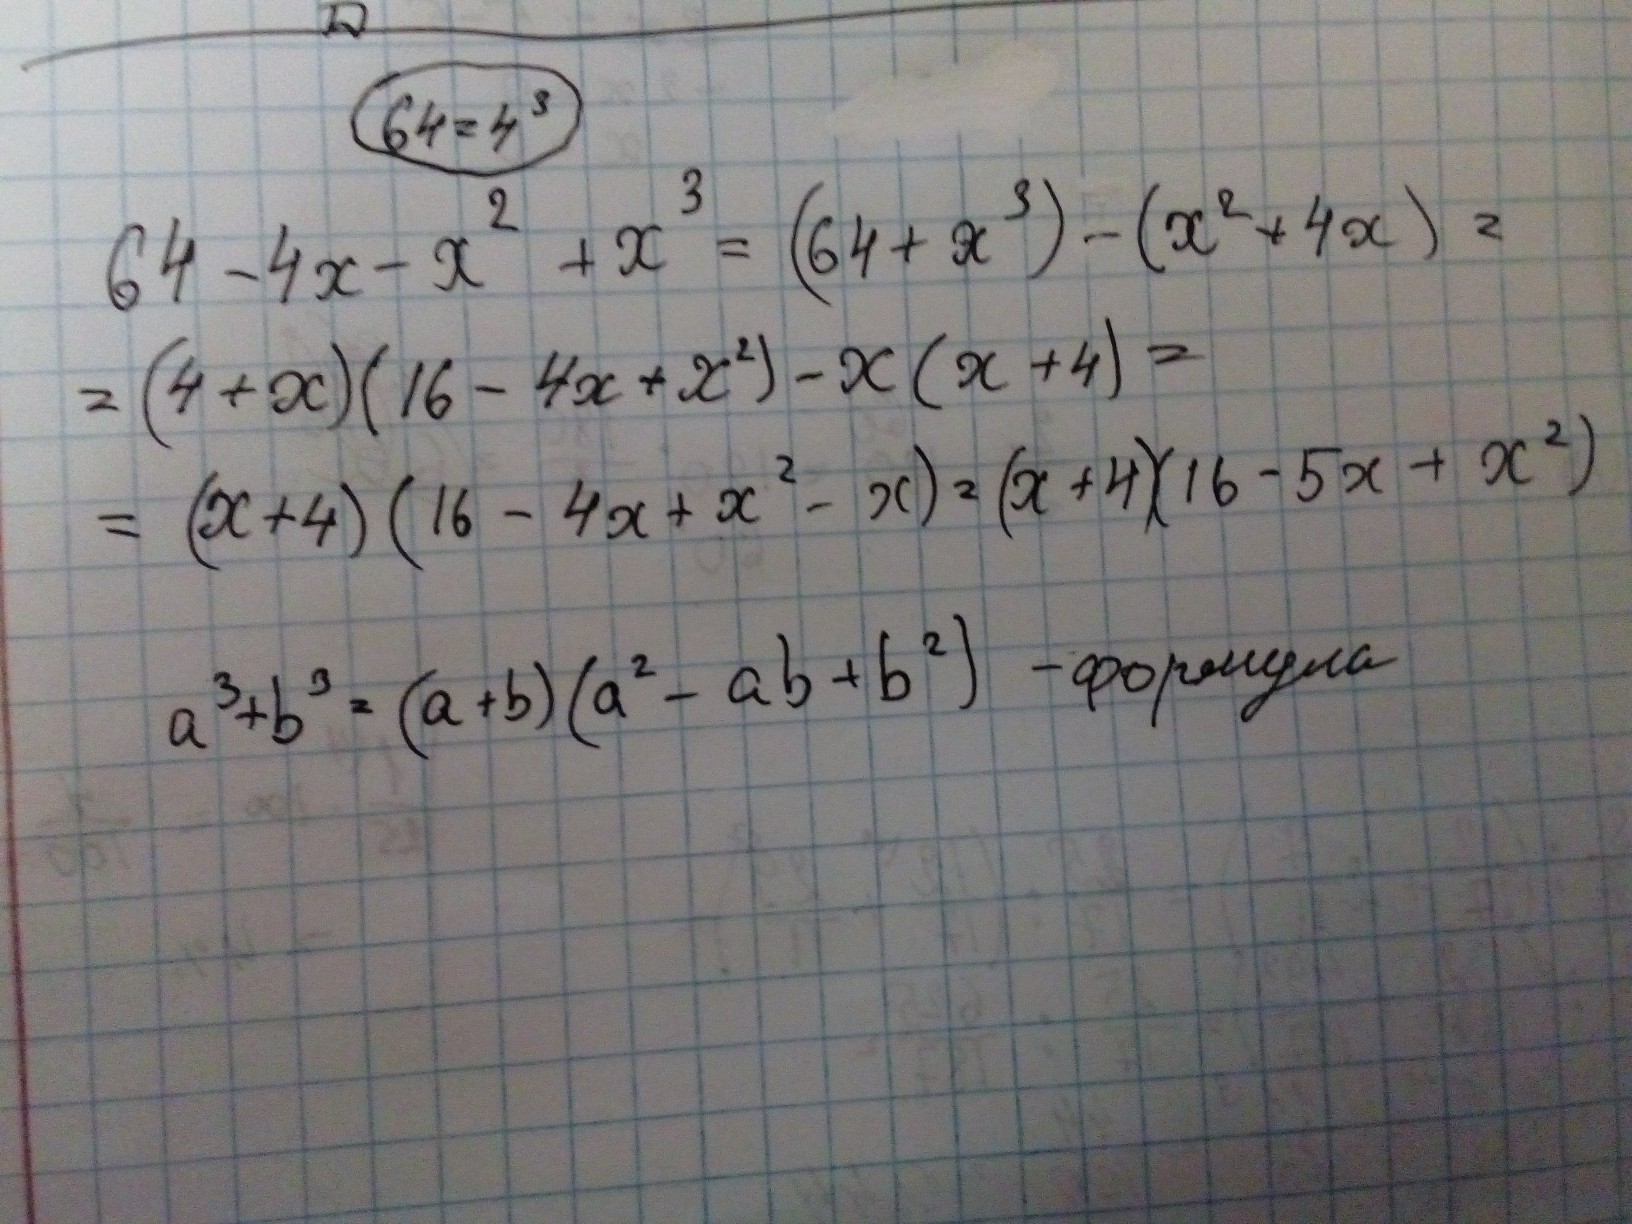 64=4³
64-4x-x²+x³=(64+x³)-(x²+4x)=
=(4+x)(16-4x+x²)-x(x+4)=
=(x+4)(16-4x+x²-x)=(x+4)(16-5x+x²)
a³+b³=(a+b)(a²-ab+b²) -формула